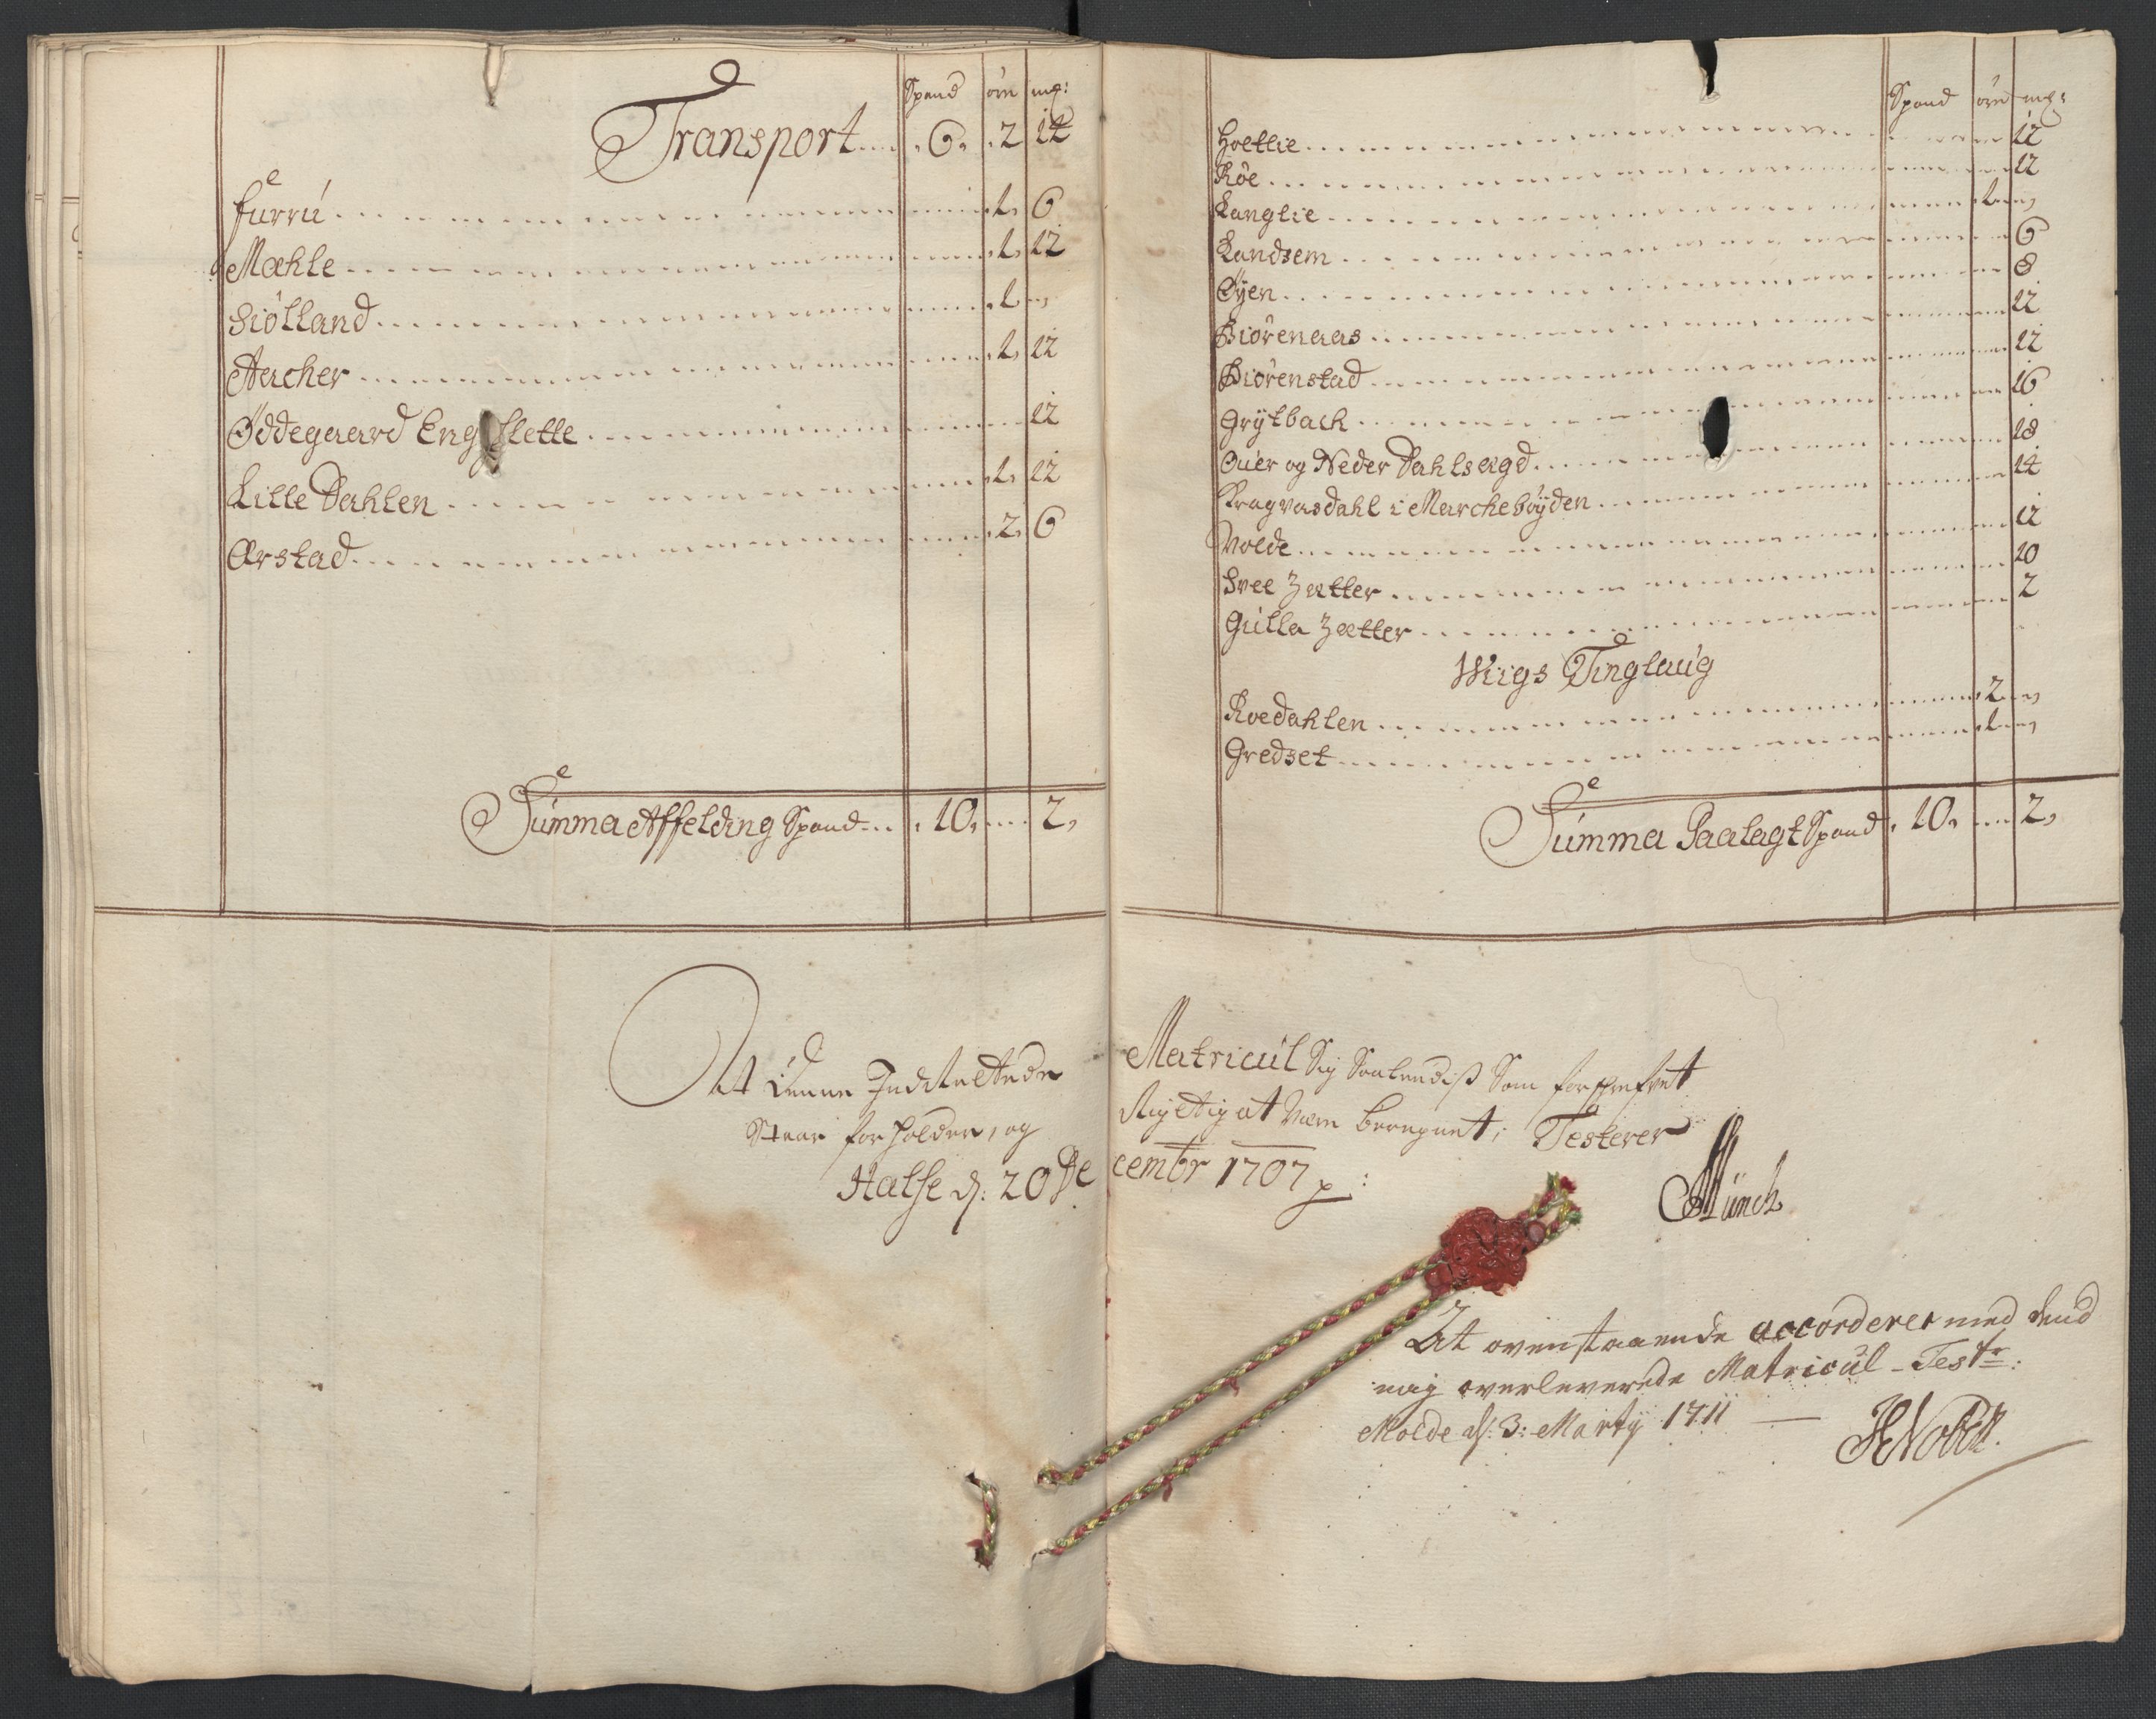 Spand øre mg:
Transport . 6. . 2 14
Furru 1. 6
Mæhle 1. 12
Siølland 1
Aacher 1. 12
Øddegaard Engeslette 12
Lille Dahlen 1. 12
Ørstad 2. 6
Summa Affelding Spand . 10. 2,
Spand øre mg:
Hoellie 12
Røe 12
Langlie 1
Landsem 6
Øyen 8
Biørenaas 12
Biørenstad 12
Grytbach 16
Ouer og Neder Dahlsægd 18
Kragvasdahl i Marchebøyden 14
Wolde 12
Svee Zætter 10
Gulla Zætter 2
Wiigs Tinglaug
Roedahlen 2
Gredset 1
Summa Paalagt Spand . 10. 2,
At denne Jndrættede Matricul sig Saaledis Som forschrefvet
Staar forholder, og Rigtig at være beregnet; Testerer
Halse d: 20 Decembr 1707 p:
Münch
At ovenstaaende accorderer med dend
mig overleverede Matricul - Testr:
Molde d: 3: Marty 1711